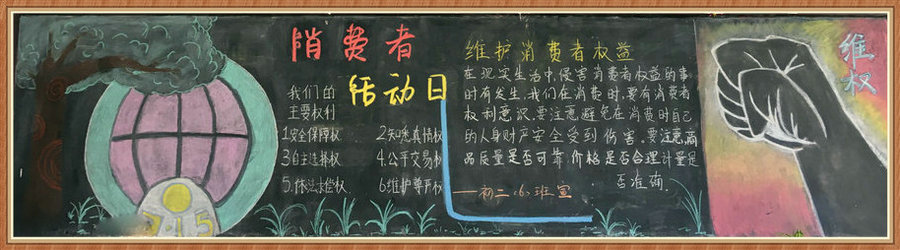 消费者
活动日
我们的
主要权利
1安全保障权
2.知悉真情权
3自主选择权
4.公平交易权
5.依法求偿权
6维护尊严权
维护消费者权益
在现实生活中,侵害消费者权益的事
时有发生,我们在消费时,要有消费者
权利意识,要注意避免在消费时自己
的人身财产安全受到伤害,要注意,商
品质量是否可靠,价格是否合理计量是
否准确.
——初二〈6〉班宣
维
权
3·15